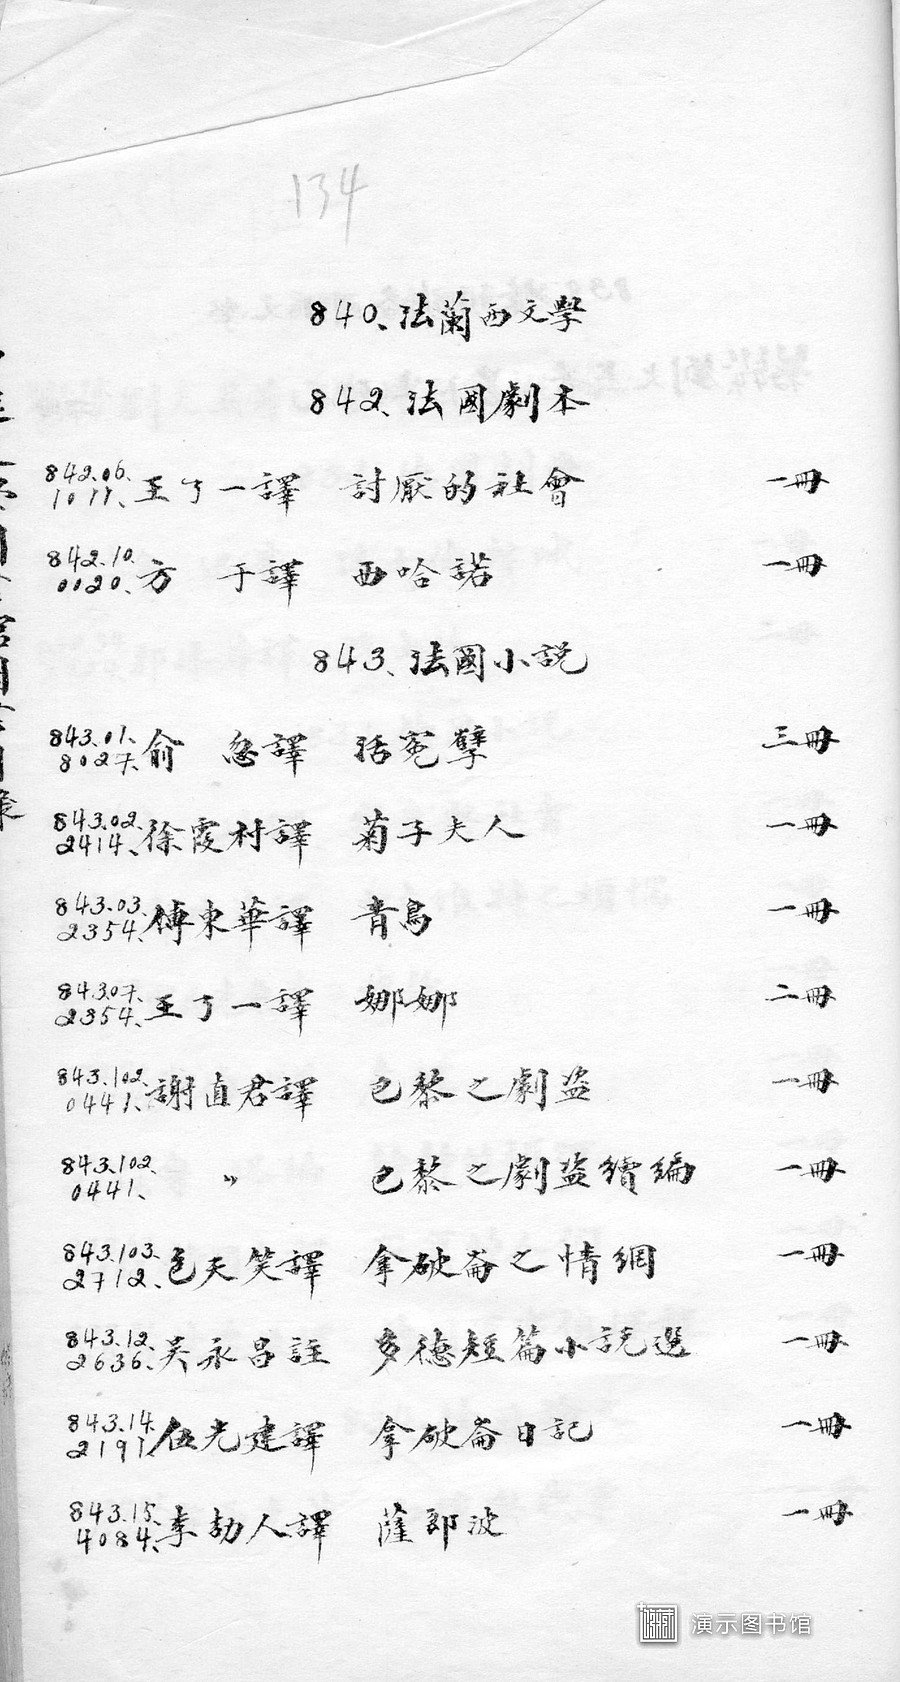 134
840、法蘭西文學
842、法國劇本
842.06. 1011、 王了一譯 討厭的社會 一冊
842.10. 0020、 方于譯 西哈諾 一冊
843、法國小說
843.01. 8027. 俞忽譯 活冤孽 三冊
843.02. 2414、 徐霞村譯 菊子夫人 一冊
843.03. 2354、 傅東華譯 青鳥 一冊
843.07. 2354、 王了一譯 娜娜 二冊
843.102. 0441、 謝直君譯 巴黎之劇盜 一冊
843.102. 0441、 〃 巴黎之劇盜續編 一冊
843.103. 2712、 包天笑譯 拿破崙之情網 一冊
843.12. 2636. 吳永昌註 多德短篇小說選 一冊
843.14. 2191. 伍光建譯 拿破崙日記 一冊
843.15. 4084、 李劼人譯 薩郎波 一冊
演示图书馆